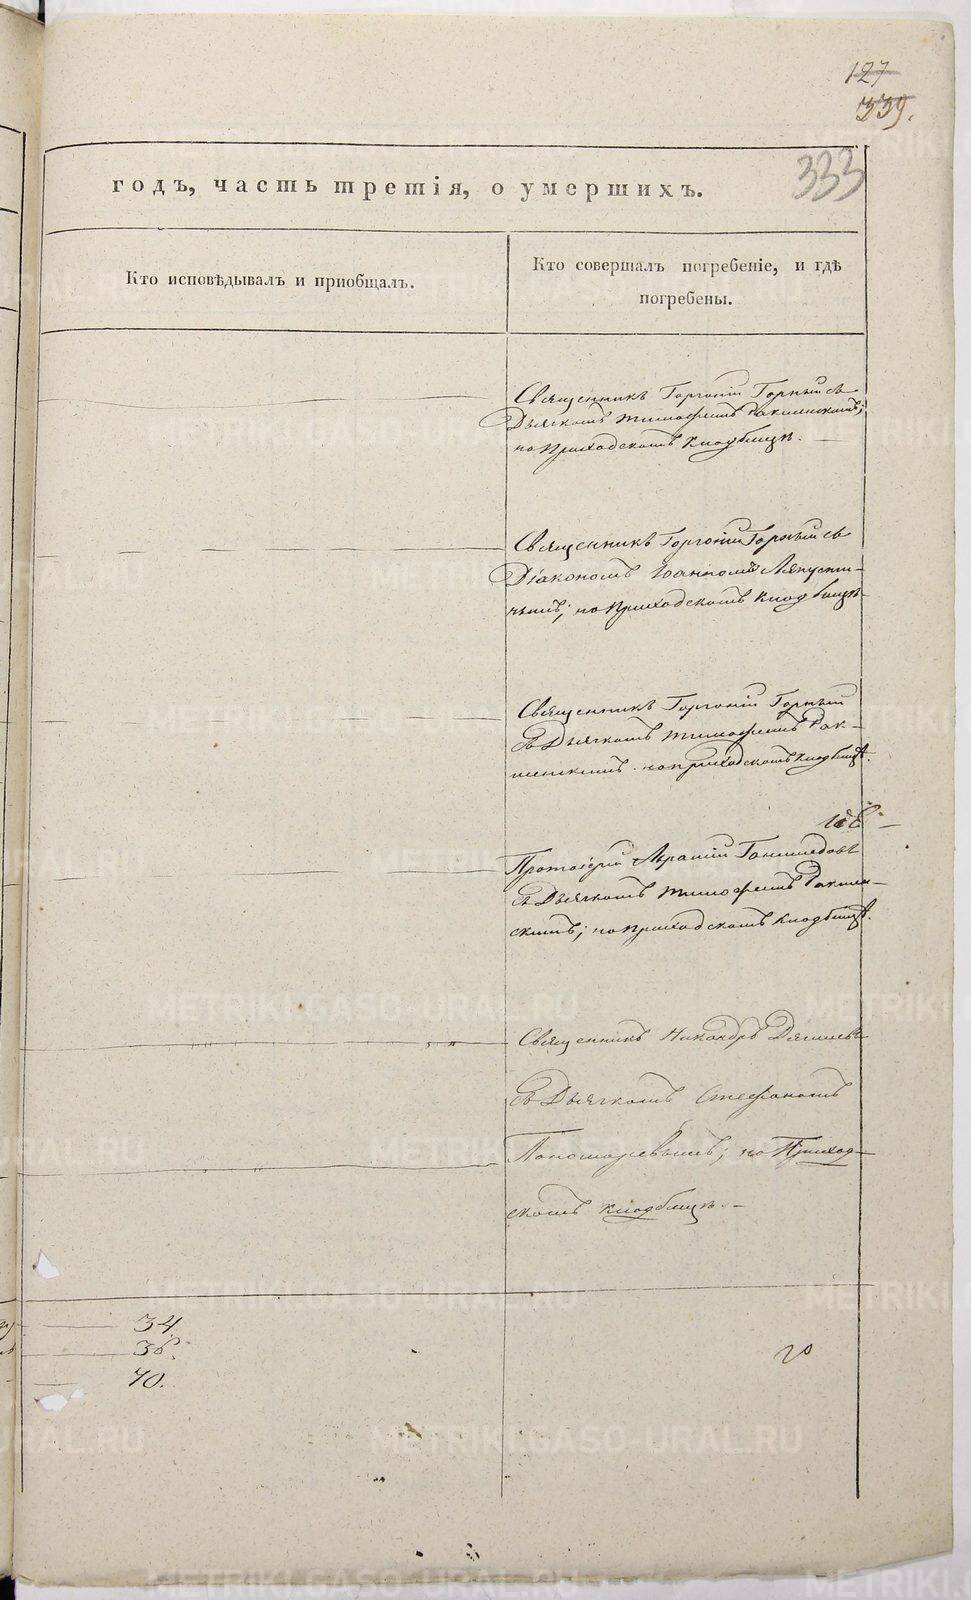 127
339.
333
годъ, часть третія, о умершихъ.
Кто исповѣдывалъ и приобщалъ.
Кто совершалъ погребеніе, и гдѣ
погребены.
Священникъ Горгоній Горный съ
Дьячкомъ Тимофеемъ
на Приходскомъ кладбищѣ.
Священникъ Горгоній Горный съ
Діакономъ Іоанномъ Ляпусти-
нымъ; на Приходскомъ кладбищѣ
Священникъ Горгоній Горный
съ Дьячкомъ Тимофеемъ
на приходскомъ кладбищѣ.
Протоіерей
съ Дьячкомъ Тимофеемъ
скимъ; на Приходскомъ кладбищѣ.
Священникъ Никандръ
съ Дьячкомъ Стефаномъ
Пономаревымъ; на Приход-
скомъ кладбищѣ.
34.
36.
70.
METRIKI.GASO-URAL.RU